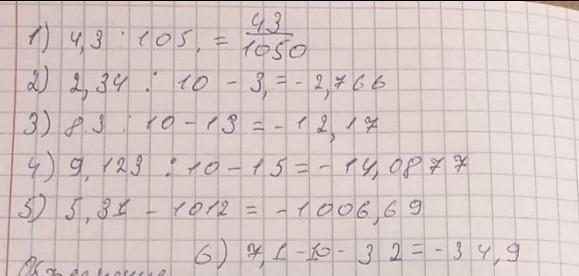 1) 4,3 : 105, = 43/1050
2) 2,34 : 10 - 3, = - 2,766
3) 8 3 : 10 - 13 = - 12,17
4) 9,123 : 10 - 15 = - 14,0877
5) 5,31 - 1012 = - 1006,69
6) 7,1 - 10 - 32 = - 34,9